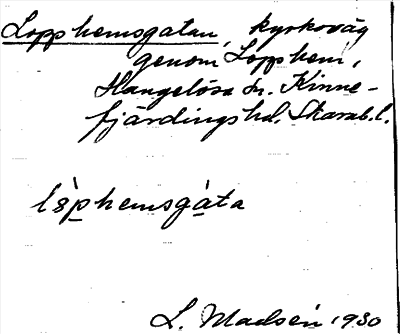 Lopphemsgatan, kyrkoväg
genom Lopphem,
Hangelösa sn. Kinne-
fjärdings hd. Skarab. l.
lòp̲hemsgáta
L. Madsén 1930